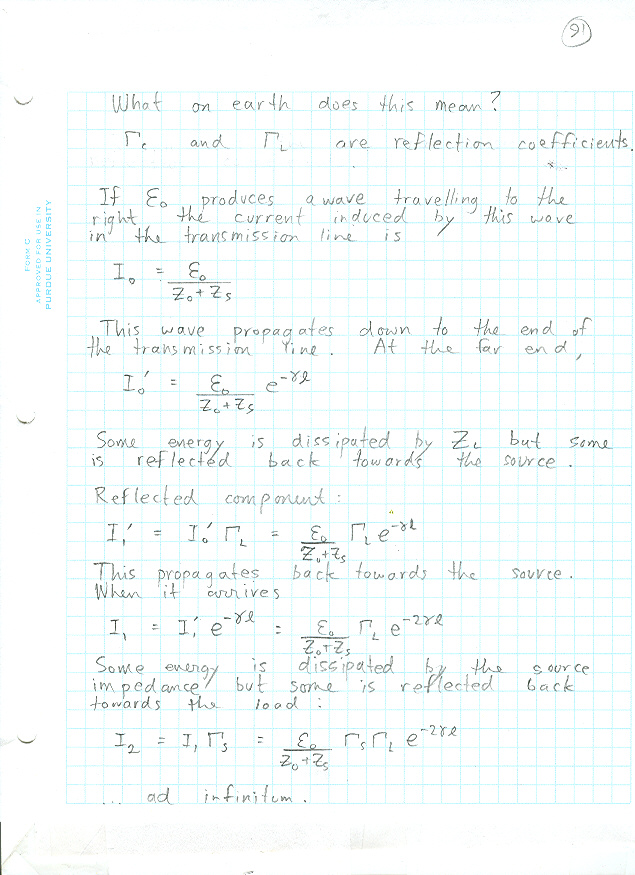 91
What on earth does this mean?
Γs and ΓL are reflection coefficients.
If ℰ₀ produces a wave travelling to the
right the current induced by this wave
in the transmission line is
I₀ = ℰ₀ / (Z₀ + Zs)
This wave propagates down to the end of
the transmission line. At the far end,
I₀′ = ℰ₀ / (Z₀ + Zs) e^(-γℓ)
Some energy is dissipated by ZL but some
is reflected back towards the source.
Reflected component:
I₁′ = I₀′ ΓL = ℰ₀ / (Z₀ + Zs) ΓL e^(-γℓ)
This propagates back towards the source.
When it arrives
I₁ = I₁′ e^(-γℓ) = ℰ₀ / (Z₀ + Zs) ΓL e^(-2γℓ)
Some energy is dissipated by the source
impedance but some is reflected back
towards the load:
I₂ = I₁ Γs = ℰ₀ / (Z₀ + Zs) Γs ΓL e^(-2γℓ)
... ad infinitum.
FORM C
APPROVED FOR USE IN
PURDUE UNIVERSITY